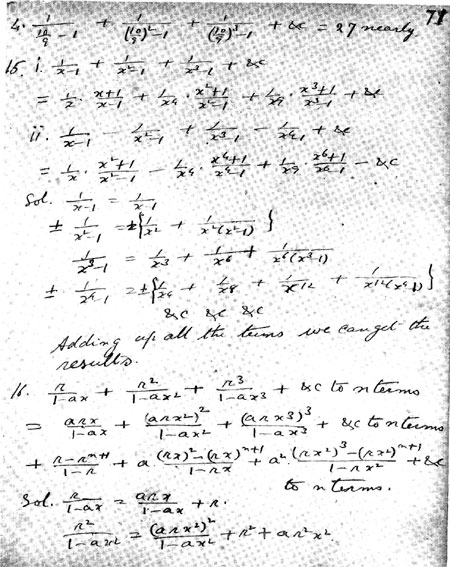 71
4. 1/(10/9 - 1) + 1/((10/9)² - 1) + 1/((10/9)³ - 1) + &c = 27 nearly
15. i. 1/(x-1) + 1/(x²-1) + 1/(x³-1) + &c
= 1/x · (x+1)/(x-1) + 1/x⁴ · (x²+1)/(x²-1) + 1/x⁹ · (x³+1)/(x³-1) + &c
ii. 1/(x-1) - 1/(x²-1) + 1/(x³-1) - 1/(x⁴-1) + &c
= 1/x · (x²+1)/(x²-1) - 1/x⁴ · (x⁴+1)/(x⁴-1) + 1/x⁹ · (x⁶+1)/(x⁶-1) - &c
Sol. 1/(x-1) = 1/(x-1)
± 1/(x²-1) = ±{1/x² + 1/(x²(x²-1))}
1/(x³-1) = 1/x³ + 1/x⁶ + 1/(x⁶(x³-1))
± 1/(x⁴-1) = ±{1/x⁴ + 1/x⁸ + 1/x¹² + 1/(x¹²(x⁴-1))}
&c &c &c
Adding up all the terms we can get the
results.
16. r/(1-ax) + r²/(1-ax²) + r³/(1-ax³) + &c to n terms
= arx/(1-ax) + (arx²)²/(1-ax²) + (arx³)³/(1-ax³) + &c to n terms
+ (r-rⁿ⁺¹)/(1-r) + a ((rx)²-(rx)ⁿ⁺¹)/(1-rx) + a² ((rx²)³-(rx²)ⁿ⁺¹)/(1-rx²) + &c
to n terms.
Sol. r/(1-ax) = arx/(1-ax) + r.
r²/(1-ax²) = (arx²)²/(1-ax²) + r² + ar²x²